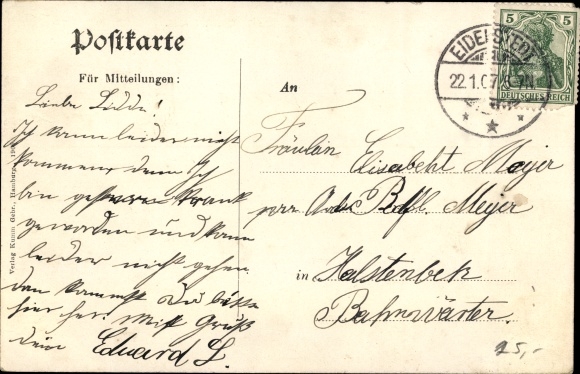 Postkarte
Für Mitteilungen:
An
5 5
DEUTSCHES REICH
EIDELSTEDT
22.1.07.
Liebe
Ich kann leider nicht
kommen denn Ich
bin gestern krank
geworden und kann
leider nicht gehen
dan kommst Du bitte
hier her. Mit Gruß
dein Eduard L.
Fräulein Elisabeht Meyer
Meyer
in Halstenbek
Bahnwärter
Verlag Kumm Gebr., Hamburg
25,-